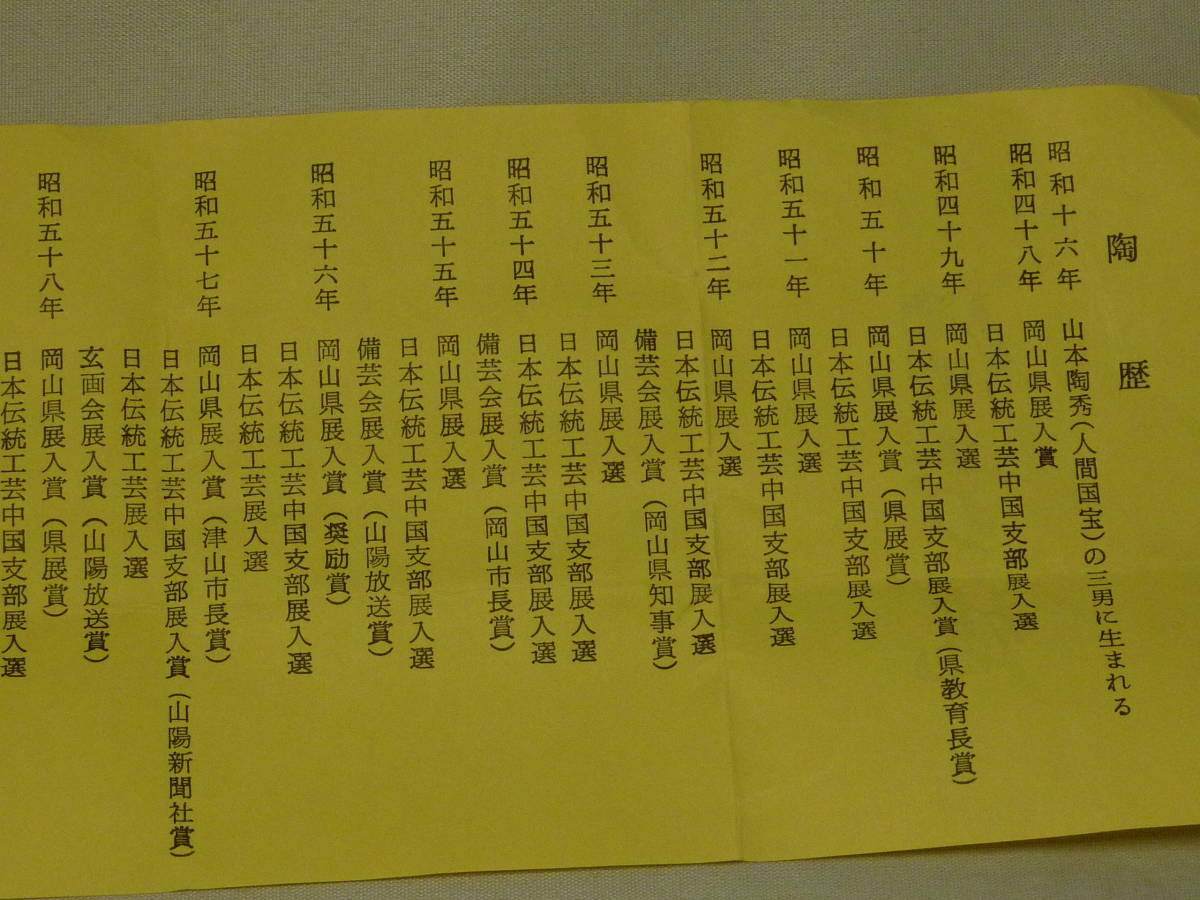 陶歴
昭和十六年 山本陶秀(人間国宝)の三男に生まれる
昭和四十八年 岡山県展入賞
日本伝統工芸中国支部展入選
昭和四十九年 岡山県展入選
日本伝統工芸中国支部展入賞(県教育長賞)
昭和五十年 岡山県展入賞(県展賞)
日本伝統工芸中国支部展入選
昭和五十一年 岡山県展入選
日本伝統工芸中国支部展入選
昭和五十二年 岡山県展入選
日本伝統工芸中国支部展入選
備芸会展入賞(岡山県知事賞)
昭和五十三年 岡山県展入選
日本伝統工芸中国支部展入選
昭和五十四年 日本伝統工芸中国支部展入選
備芸会展入賞(岡山市長賞)
昭和五十五年 岡山県展入選
日本伝統工芸中国支部展入選
備芸会展入賞(山陽放送賞)
昭和五十六年 岡山県展入賞(奨励賞)
日本伝統工芸中国支部展入選
日本伝統工芸展入選
昭和五十七年 岡山県展入賞(津山市長賞)
日本伝統工芸中国支部展入賞(山陽新聞社賞)
日本伝統工芸展入選
玄画会展入賞(山陽放送賞)
昭和五十八年 岡山県展入賞(県展賞)
日本伝統工芸中国支部展入選